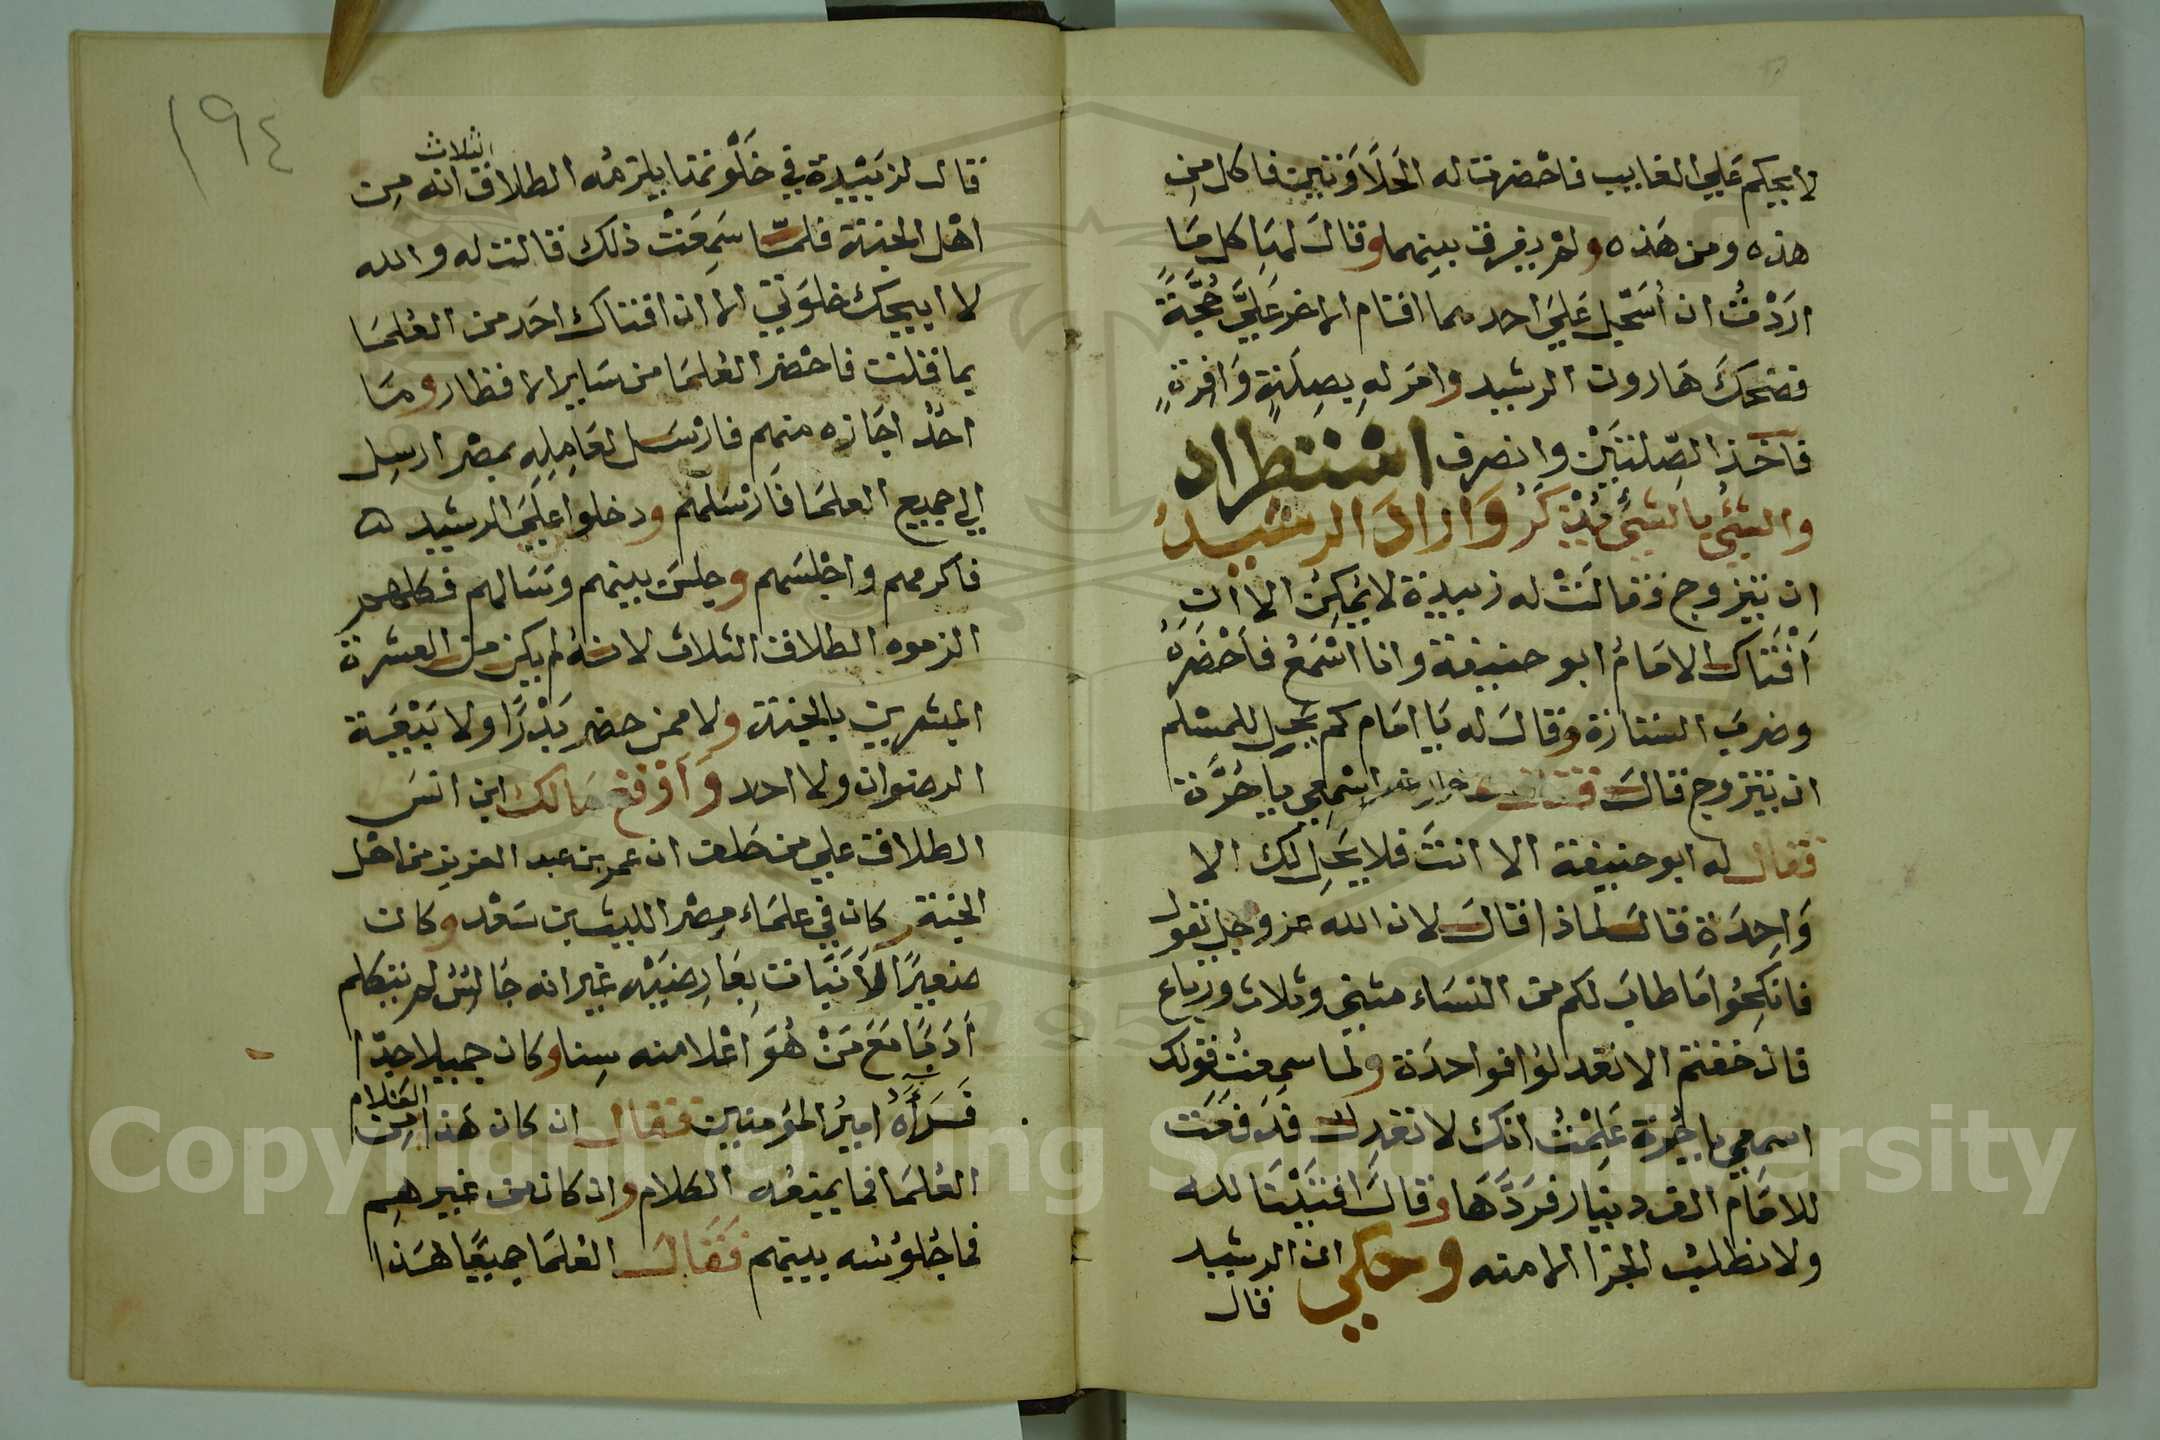 لا يحكم علي الغايب فاحضرت له الحلاوتين فاكل من
هذه ومن هذه ولم يفرق بينهما وقال لها كل ما
اردت ان أسجل علي احدهما اقام الاخر علي حجة
فضحك هارون الرشيد وامر له بصلة وافرة
فاخذ الصلتين وانصرف استطراد
والشئ بالشئ يذكر واراد الرشيد
ان يتزوج فقالت له زبيدة لا يمكن الا ان
أفتاك الامام ابو حنيفة وانا اسمع فأحضره
وضرب الستارة وقال له يا امام كم يحل للمسلم
ان يتزوج قال فقال اسمعي يا حرة
فقال له ابو حنيفة الا انت فلا يحل لك الا
واحدة قال لماذا قال لان الله عز وجل يقول
فانكحوا ما طاب لكم من النساء مثني وثلاث ورباع
فان خفتم الا تعدلوا فواحدة ولما سمعت قولك
اسمعي يا حرة علمت انك لا تعدل قدفعت
للامام الف دينار فردها وقال افتيتنا لله
ولا نطلب الجزا الا منه وحكي ان الرشيد
قال
١٩٤
قال لزبيدة في خلوتها يلزمه الطلاق الثلاث انه من
اهل الجنة فلما سمعت ذلك قالت له والله
لا ابيحك خلوتي الا ان افتاك احد من العلما
بما قلت فاحضر العلما من ساير الاقطار وما
احد اجازه منهم فارسل لعامله بمصر ارسل
الي جميع العلما فارسلهم ودخلوا علي الرشيد
فاكرمهم واجلسهم وجلس بينهم وسالهم فكلهم
الزموه الطلاق الثلاث لانه لم يكن من العشرة
المبشرين بالجنة ولا ممن حضر بدرا ولا بيعة
الرضوان ولا احد وأوقع مالك ابن انس
الطلاق علي من حلف ان عمر بن عبد العزيز من اهل
الجنة وكان في علماء مصر الليث بن سعد وكان
صغيرا لا نبات بعارضيه غير انه جالس لم يتكلم
أدبا مع من هو اعلا منه سنا وكان جميلا جدا
فرأه امير المومنين فقال ان كان هذا الغلام من
العلما فما يمنعه الكلام وان كان من غيرهم
فما جلوسه بينهم فقال العلما جميعا هذا
Copyright © King Saud University
1957